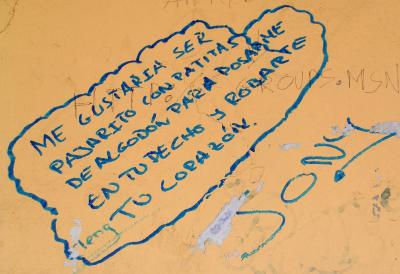 ME GUSTARIA SER
PAJARITO CON PATITAS
DE ALGODÓN PARA POSARME
EN TU PECHO Y ROBARTE
TU CORAZÓN.
GROUPS.MSN
JONY